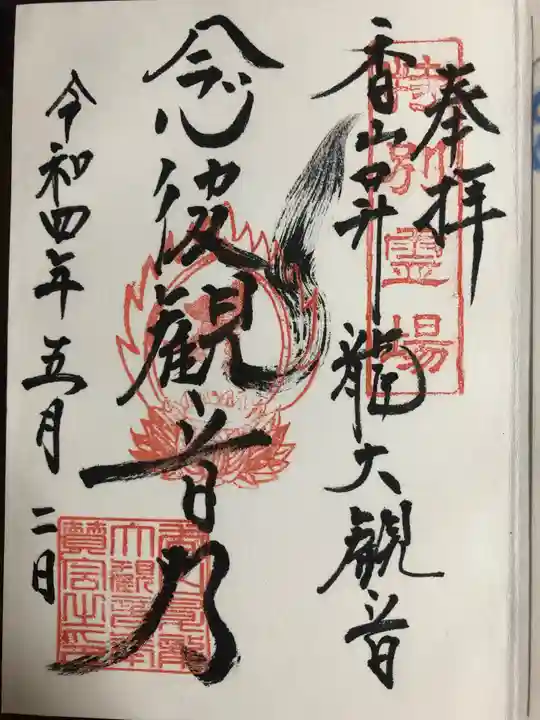 奉拝
特別霊場
香山昇龍大観音
念彼観音力
令和四年五月二日